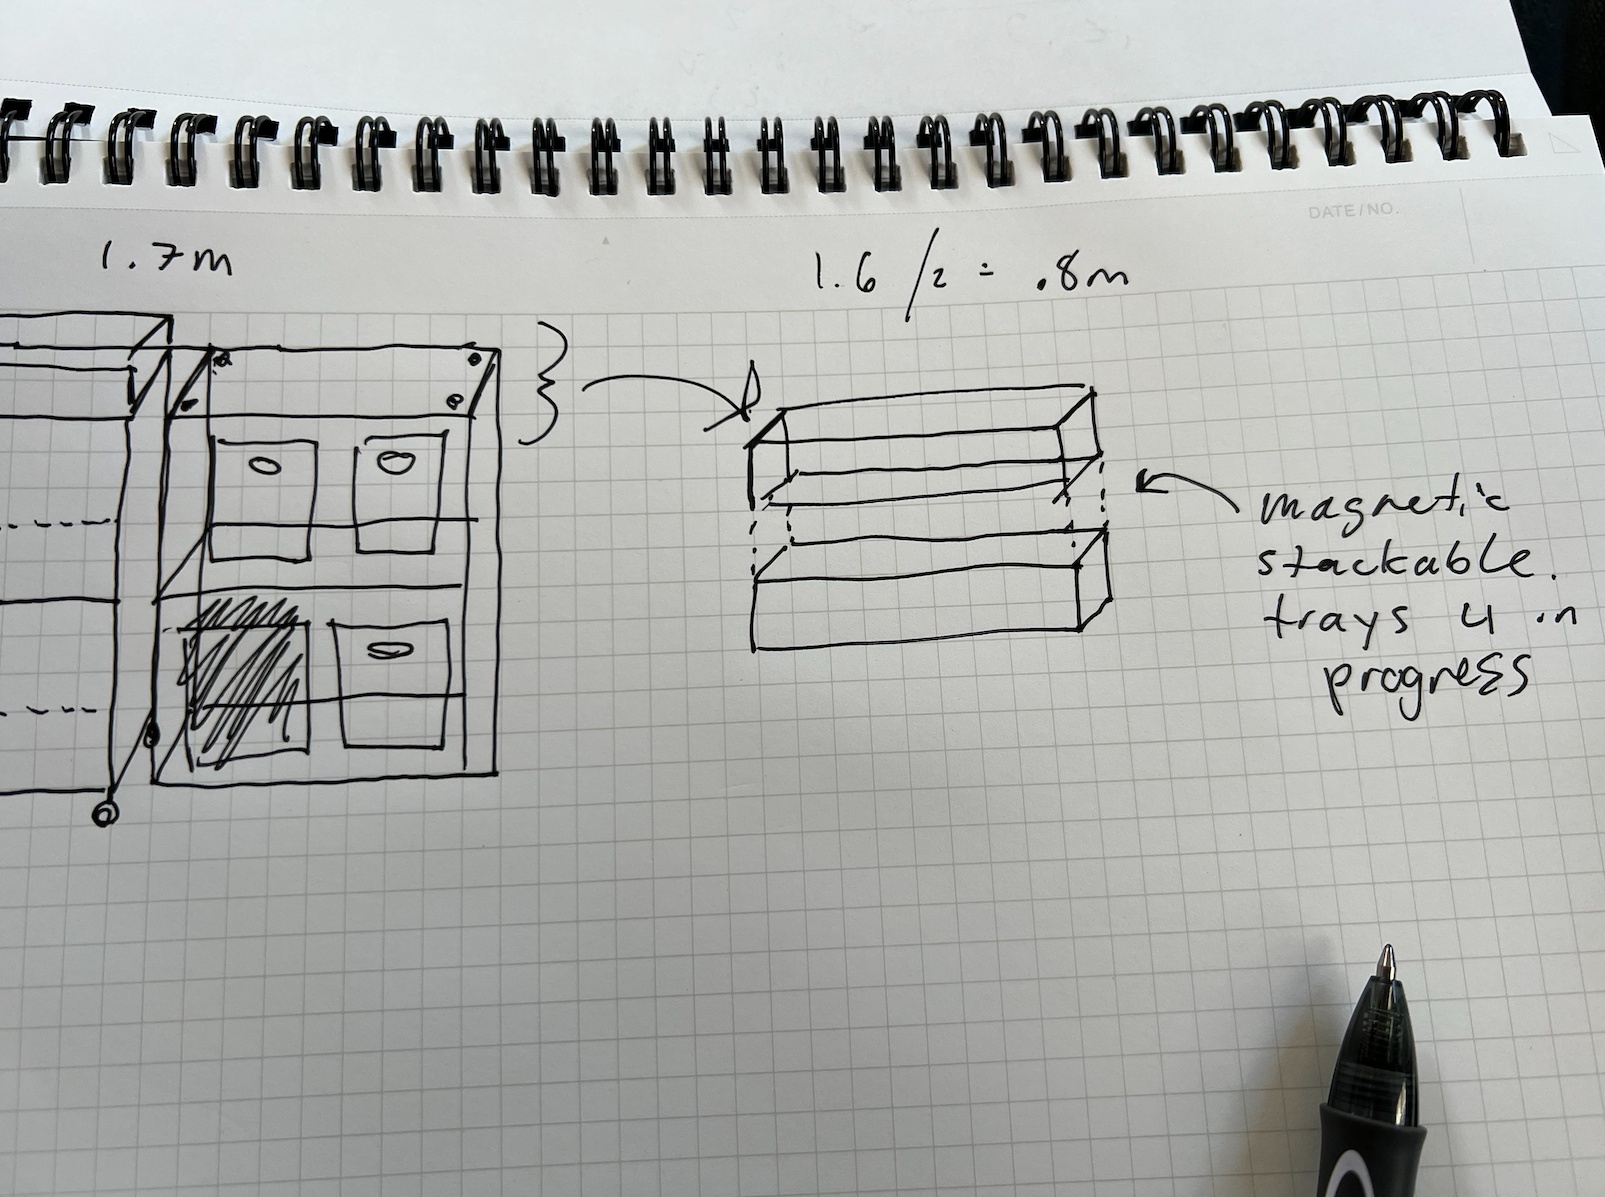 DATE/NO.
1.7m
1.6 /2 = .8m
magnetic
stackable.
trays 4 in
progress